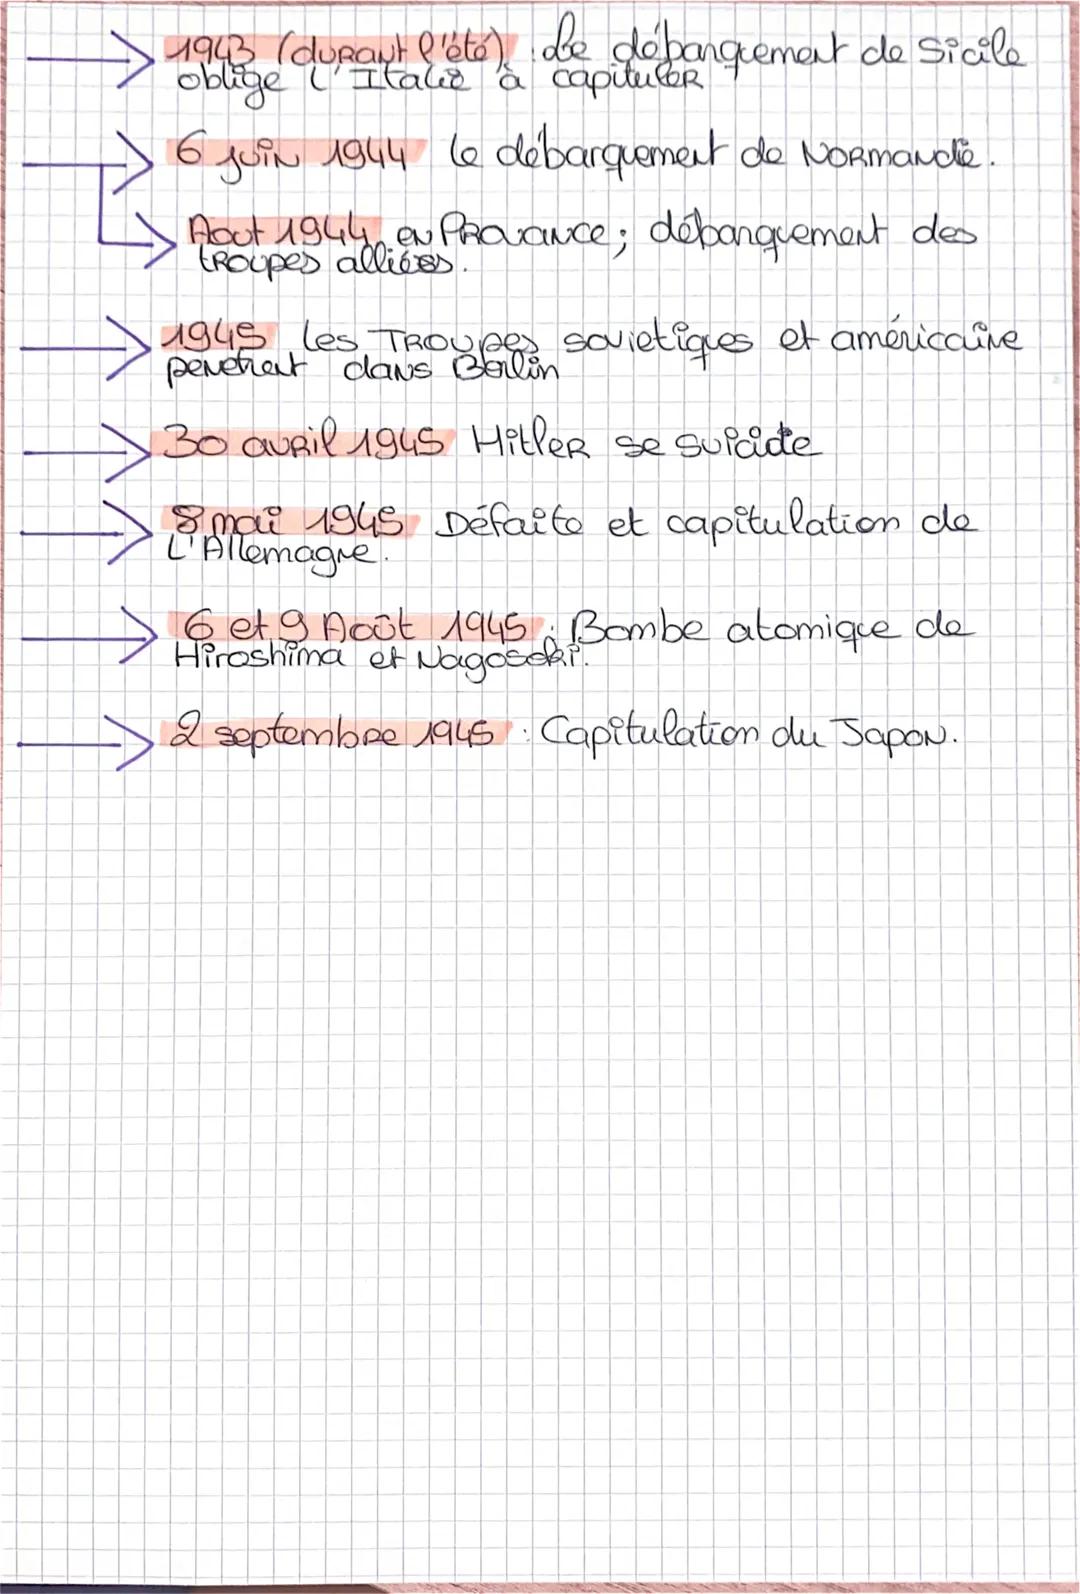 1943 (durant l'été) : Le débarquement de Sicile
oblige l'Italie à capituler
6 juin 1944 le débarquement de Normandie.
Aout 1944 en Provance ; débarquement des
troupes alliées.
1945 les Troupes sovietiques et américaine
penetrent dans Berlin
30 avril 1945 Hitler se suicide
8 mai 1945 Défaite et capitulation de
L'Allemagne.
6 et 9 Août 1945 : Bombe atomique de
Hiroshima et Nagosaki.
2 septembre 1945 : Capitulation du Japon.